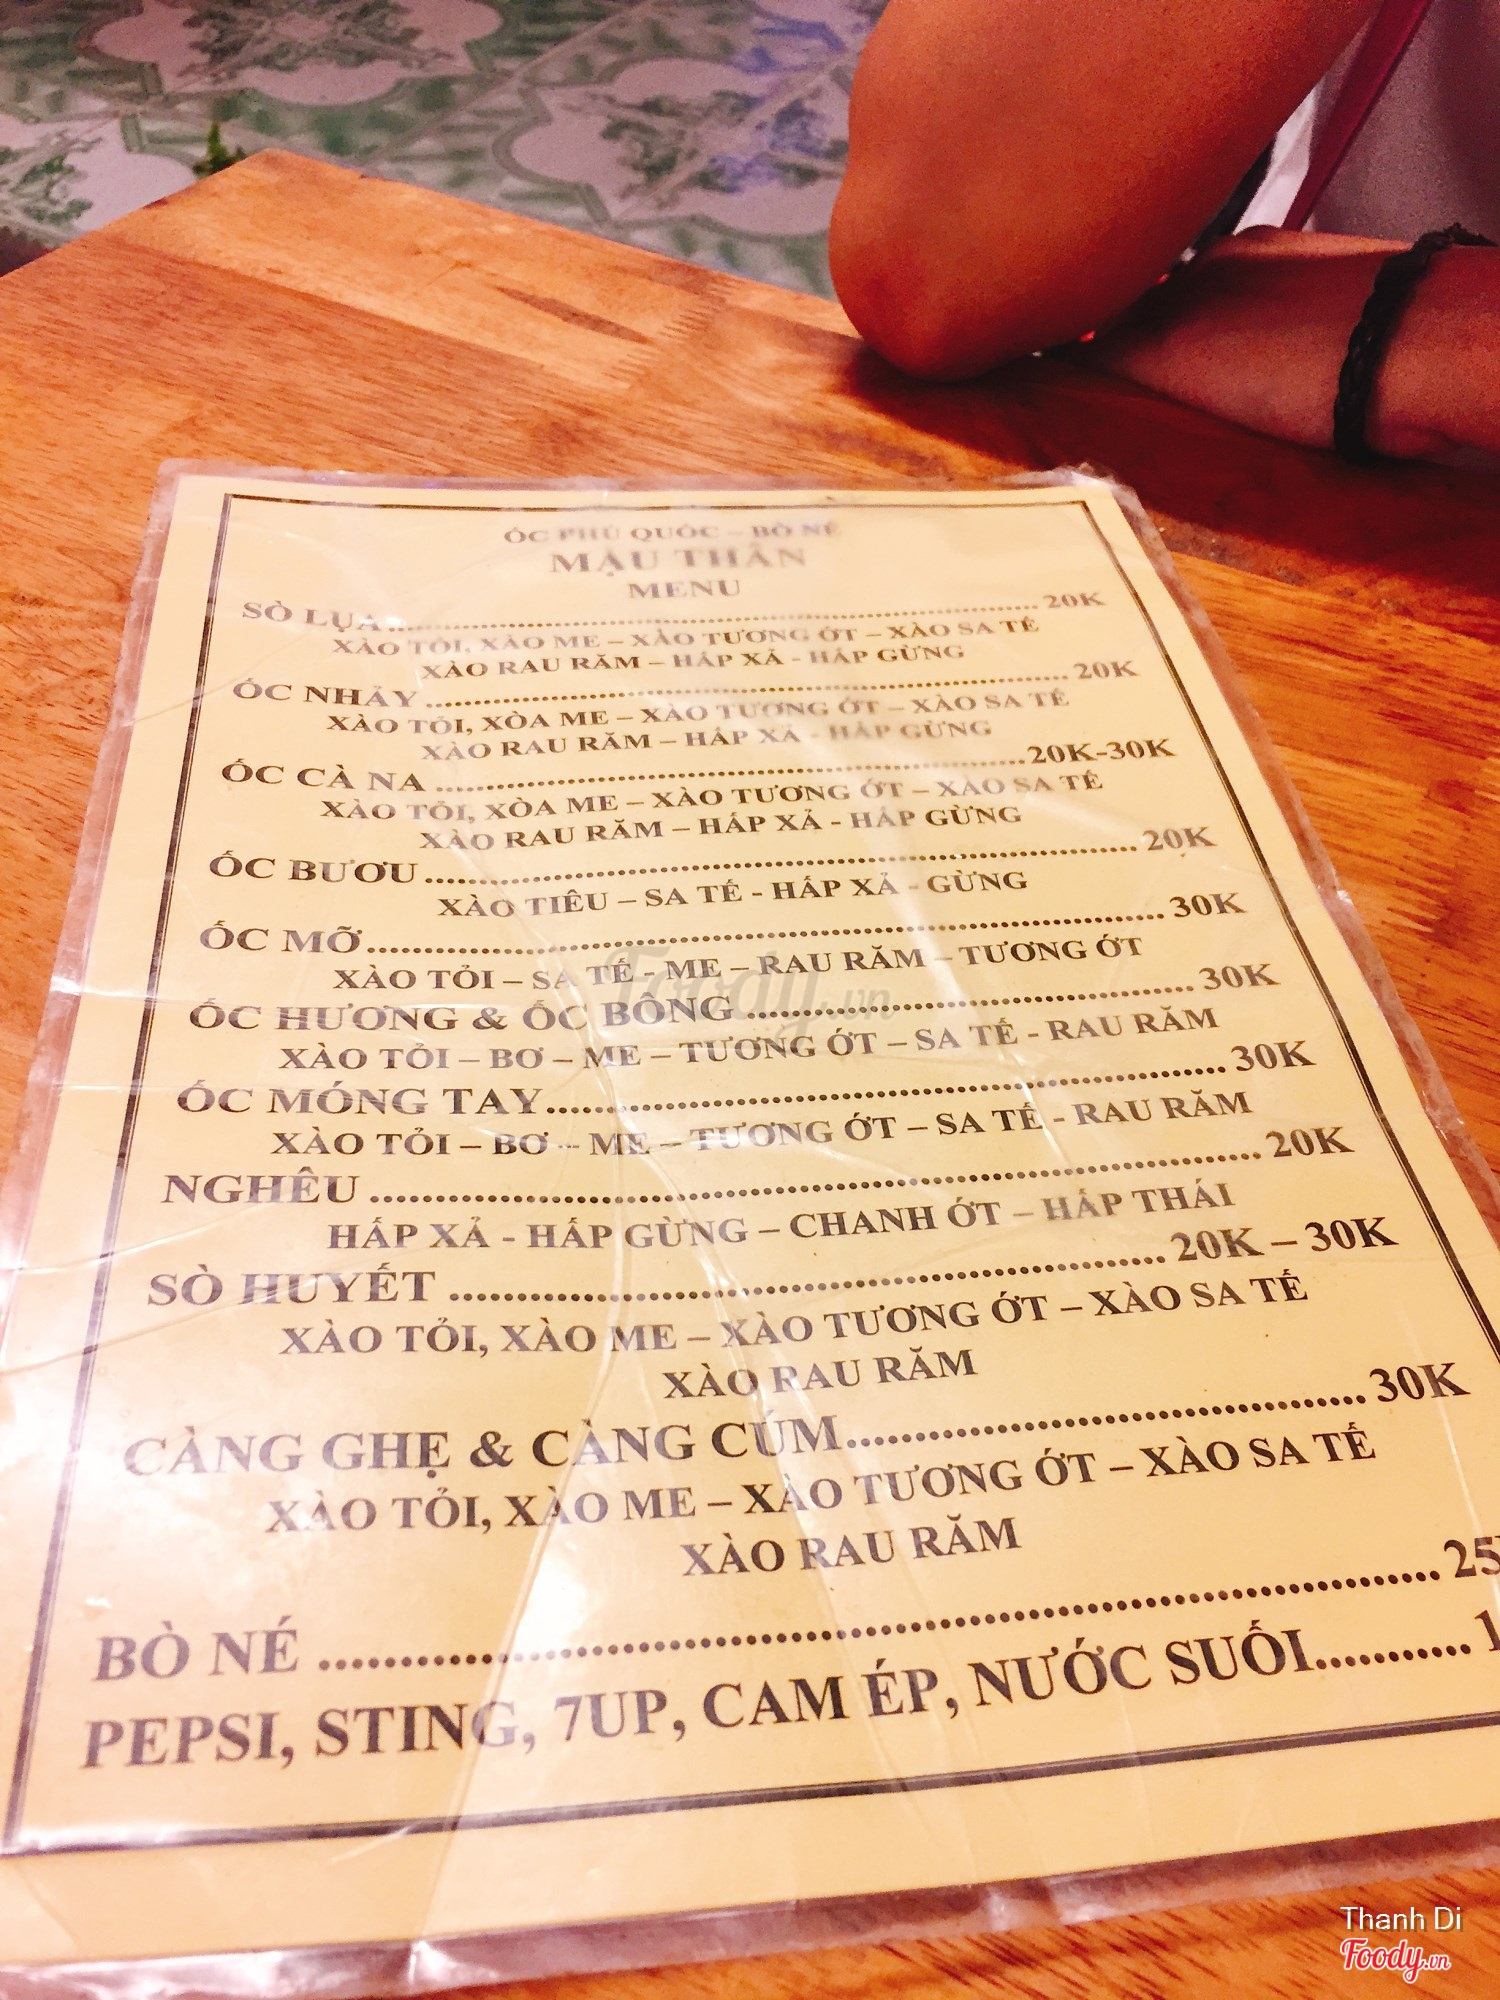 ỐC PHÚ QUỐC – BÒ NÉ
MẬU THÂN
MENU
SÒ LỤA 20K
XÀO TỎI, XÀO ME – XÀO TƯƠNG ỚT – XÀO SA TẾ
XÀO RAU RĂM – HẤP XẢ - HẤP GỪNG
ỐC NHẢY 20K
XÀO TỎI, XÒA ME – XÀO TƯƠNG ỚT – XÀO SA TẾ
XÀO RAU RĂM – HẤP XẢ - HẤP GỪNG
ỐC CÀ NA 20K-30K
XÀO TỎI, XÒA ME – XÀO TƯƠNG ỚT – XÀO SA TẾ
XÀO RAU RĂM – HẤP XẢ - HẤP GỪNG
ỐC BƯƠU 20K
XÀO TIÊU – SA TẾ - HẤP XẢ - GỪNG
ỐC MỠ 30K
XÀO TỎI – SA TẾ - ME – RAU RĂM – TƯƠNG ỚT
ỐC HƯƠNG & ỐC BÔNG 30K
XÀO TỎI – BƠ – ME – TƯƠNG ỚT – SA TẾ - RAU RĂM
ỐC MÓNG TAY 30K
XÀO TỎI – BƠ – ME – TƯƠNG ỚT – SA TẾ - RAU RĂM
NGHÊU 20K
HẤP XẢ - HẤP GỪNG – CHANH ỚT – HẤP THÁI
SÒ HUYẾT 20K – 30K
XÀO TỎI, XÀO ME – XÀO TƯƠNG ỚT – XÀO SA TẾ
XÀO RAU RĂM
CÀNG GHẸ & CÀNG CÚM 30K
XÀO TỎI, XÀO ME – XÀO TƯƠNG ỚT – XÀO SA TẾ
XÀO RAU RĂM
BÒ NÉ 25
PEPSI, STING, 7UP, CAM ÉP, NƯỚC SUỐI
Foody.vn
Thanh Di
Foody.vn